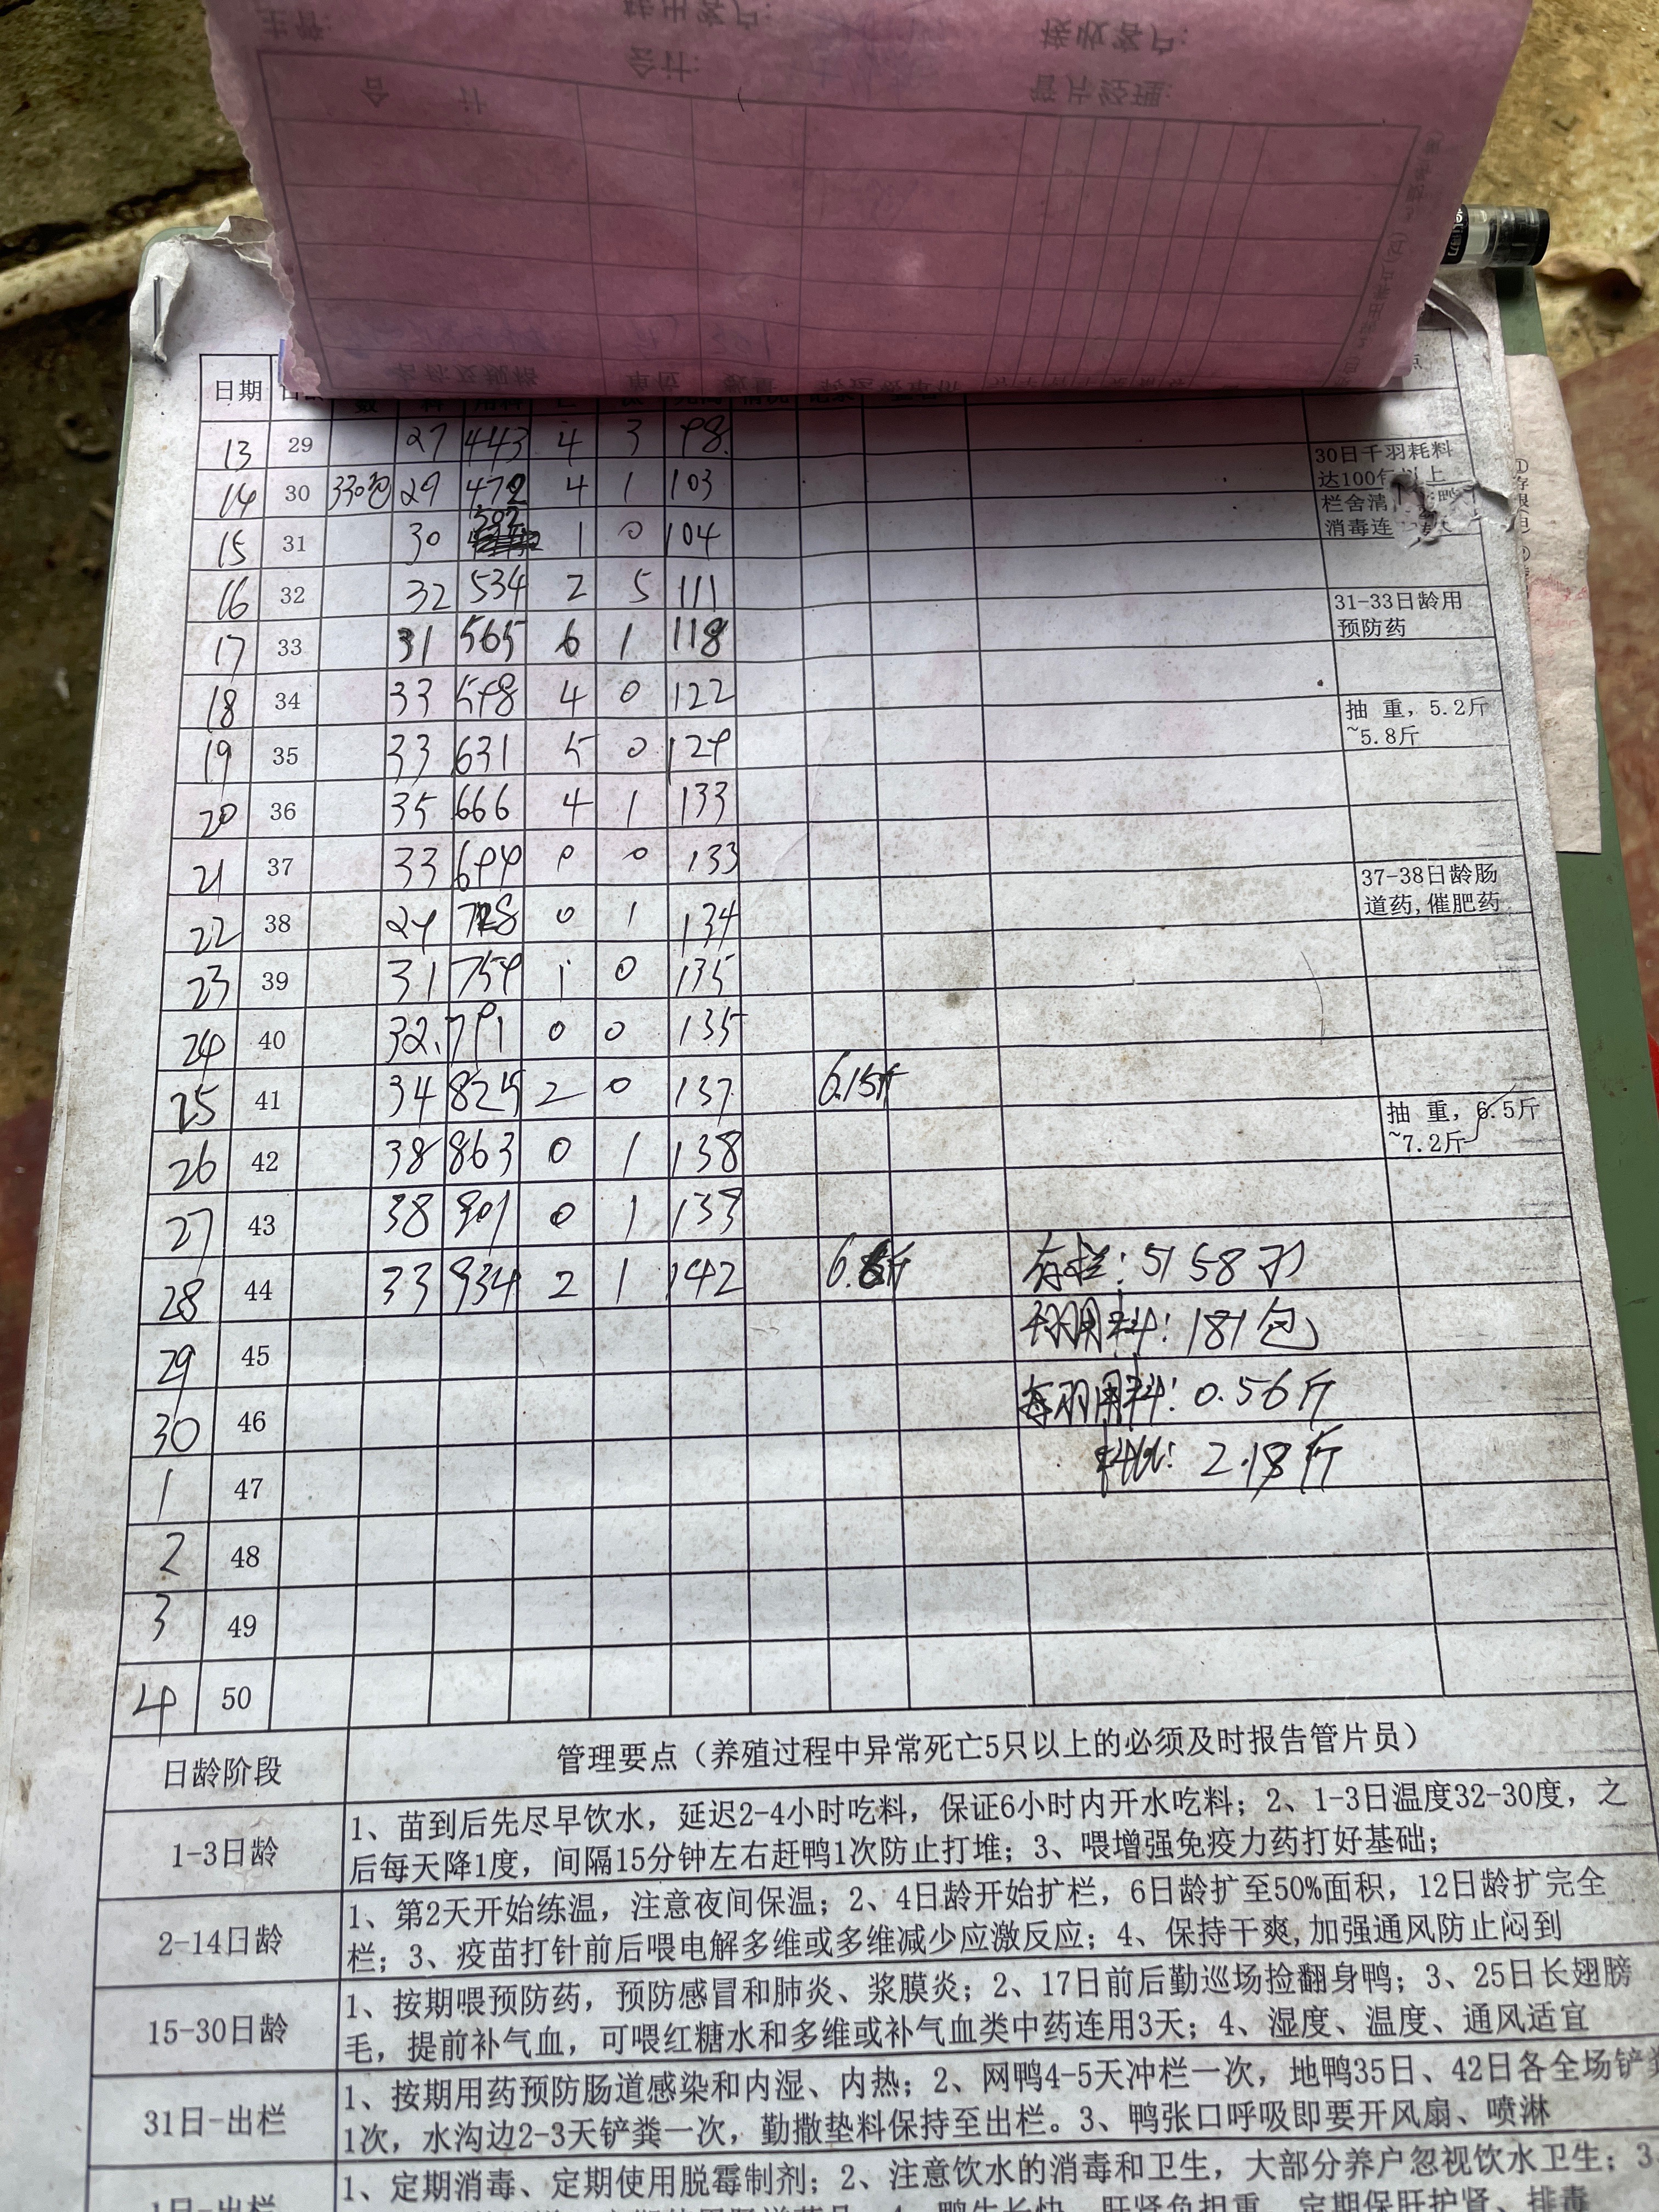 主管:
转出客户:
接收客户:
会计:
管片经理:
合 计
名称及规格 单位 数量
日期
13 29 27 443 4 3 98
14 30 330包 29 472 4 1 103
30日千羽耗料
达100包以上
15 31 30 502 1 0 104
栏舍清
消毒连
16 32 32 534 2 5 111
31-33日龄用
预防药
17 33 31 565 6 1 118
18 34 33 598 4 0 122
抽 重，5.2斤
~5.8斤
19 35 33 631 5 0 129
20 36 35 666 4 1 133
21 37 33 699 0 0 133
37-38日龄肠
道药,催肥药
22 38 29 728 0 1 134
23 39 31 759 1 0 135
24 40 32. 791 0 0 135
25 41 34 825 2 0 137 6.15斤
抽 重，6.5斤
~7.2斤
26 42 38 863 0 1 138
27 43 38 901 0 1 139
28 44 33 934 2 1 142 6.6斤 存栏: 5158羽
29 45 千羽用料: 181包
30 46 每羽用料: 0.56斤
1 47 料比: 2.18斤
2 48
3 49
4 50
日龄阶段 管理要点（养殖过程中异常死亡5只以上的必须及时报告管片员）
1-3日龄
1、苗到后先尽早饮水，延迟2-4小时吃料，保证6小时内开水吃料；2、1-3日温度32-30度，之
后每天降1度，间隔15分钟左右赶鸭1次防止打堆；3、喂增强免疫力药打好基础；
2-14日龄
1、第2天开始练温，注意夜间保温；2、4日龄开始扩栏，6日龄扩至50%面积，12日龄扩完全
栏；3、疫苗打针前后喂电解多维或多维减少应激反应；4、保持干爽,加强通风防止闷到
15-30日龄
1、按期喂预防药，预防感冒和肺炎、浆膜炎；2、17日前后勤巡场捡翻身鸭；3、25日长翅膀
毛，提前补气血，可喂红糖水和多维或补气血类中药连用3天；4、湿度、温度、通风适宜
31日-出栏
1、按期用药预防肠道感染和内湿、内热；2、网鸭4-5天冲栏一次，地鸭35日、42日各全场铲粪
1次，水沟边2-3天铲粪一次，勤撒垫料保持至出栏。3、鸭张口呼吸即要开风扇、喷淋
1日-出栏
1、定期消毒、定期使用脱霉制剂；2、注意饮水的消毒和卫生，大部分养户忽视饮水卫生；3、
4、鸭生长快，肝肾负担重，定期保肝护肾、排毒